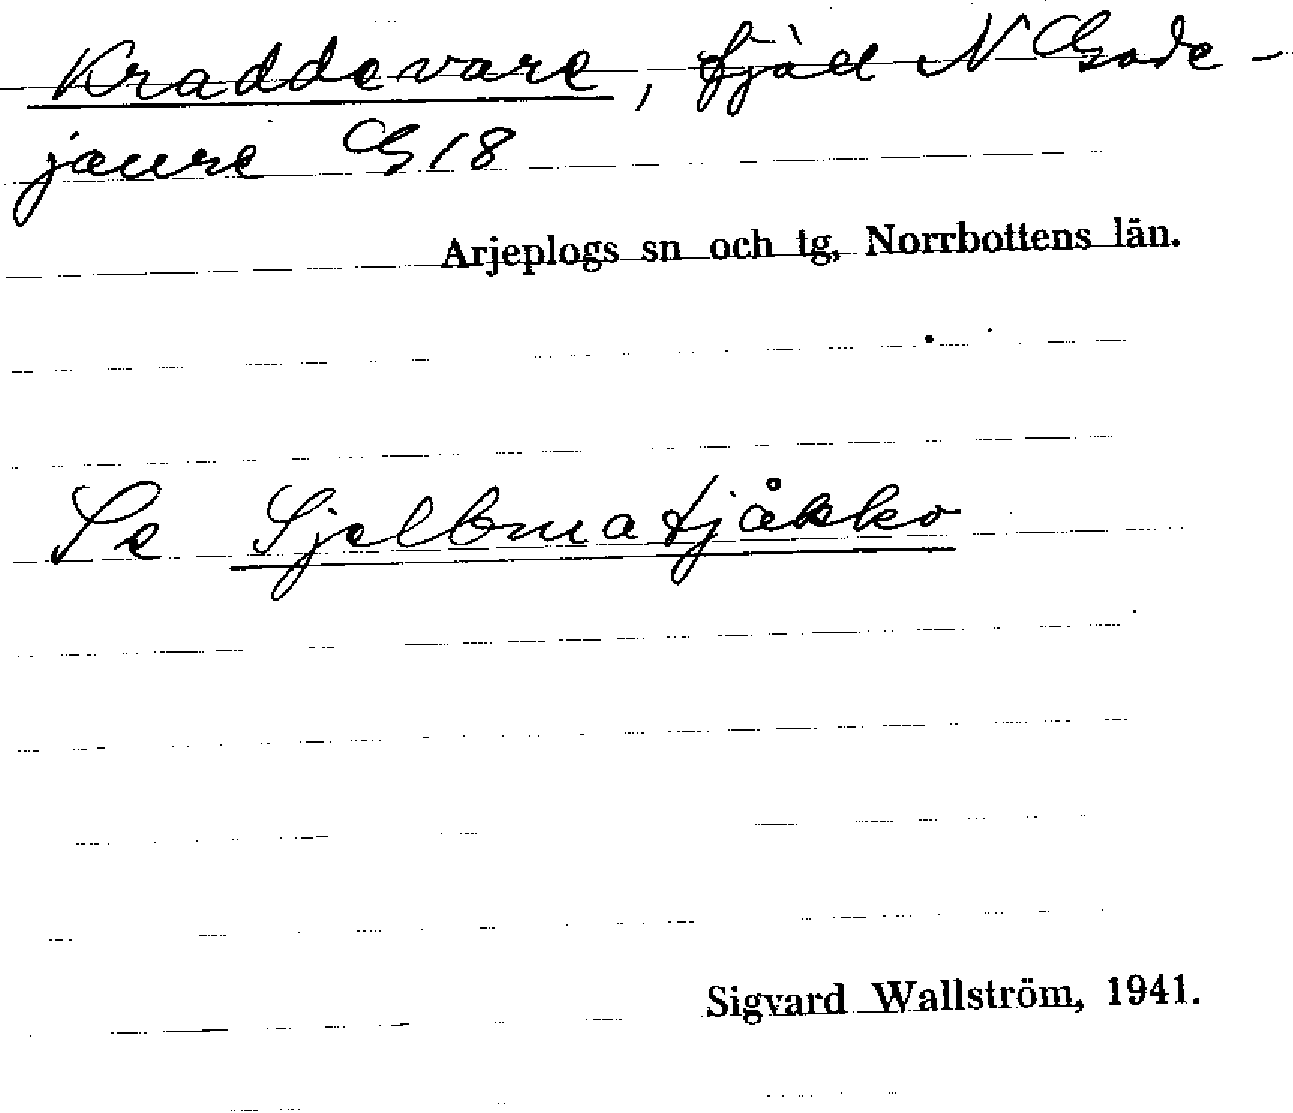 Kraddevare, fjäll N Gade-
jaure G18
Arjeplogs sn och tg, Norrbottens län.
Se Sjelbmatjåkko
Sigvard Wallström, 1941.